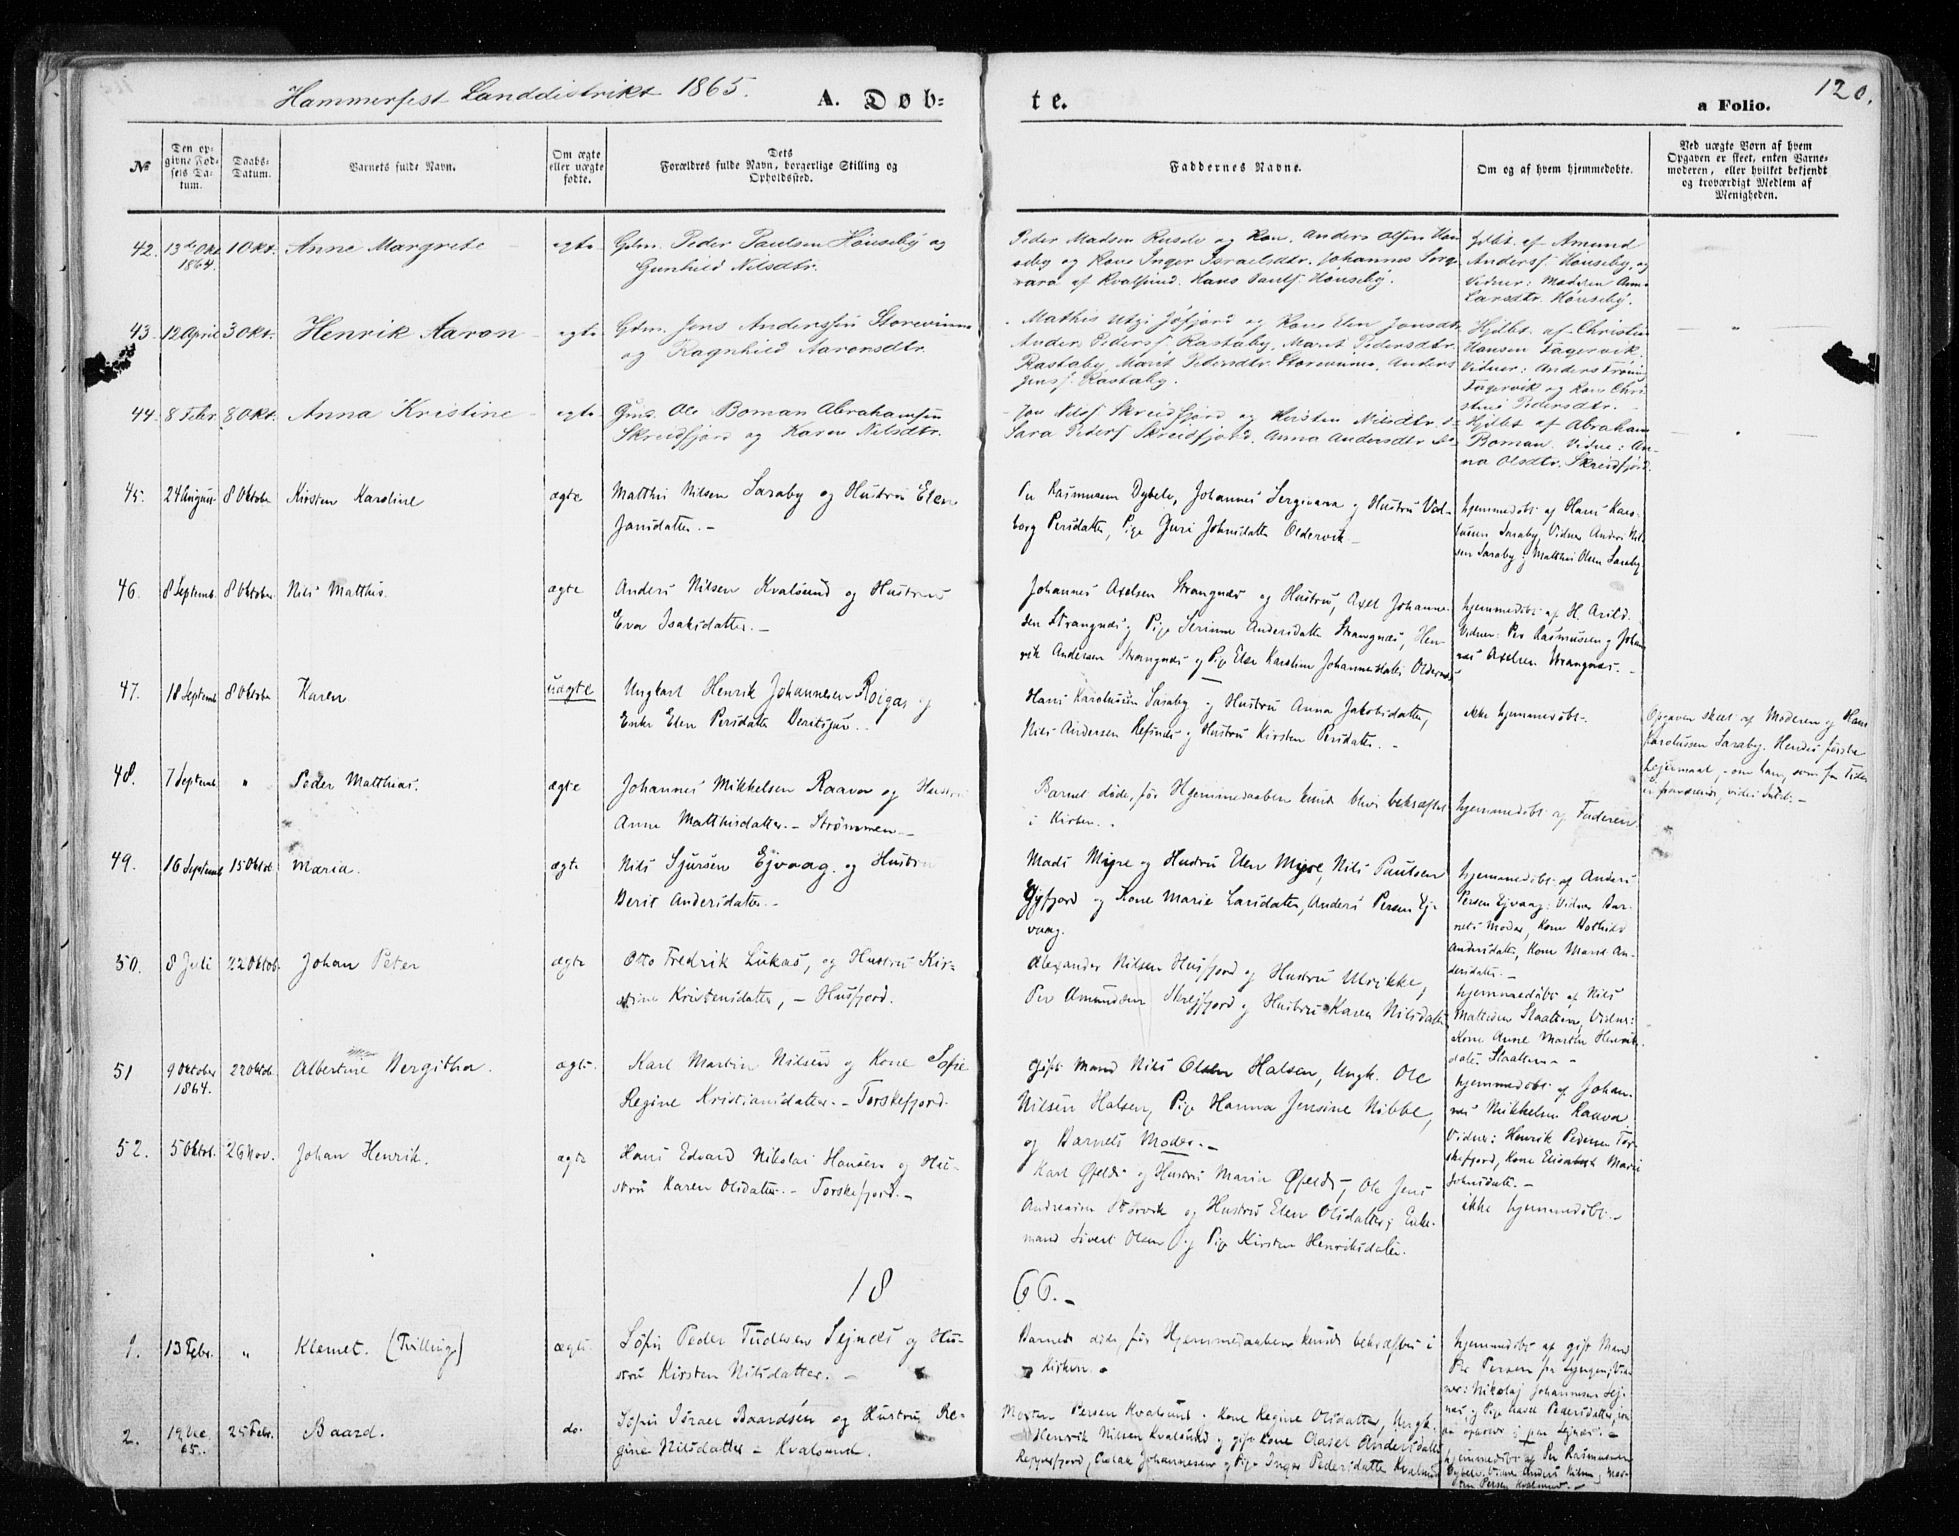 Hammerfest Landdistrikt 1865.
A. Døb-
te.
a Folio.
120.
№
Den op-
givne Fød-
sels Da-
tum.
Daabs-
Datum.
Barnets fulde Navn.
Om ægte
eller uægte
fødte.
Dets
Forældres fulde Navn, borgerlige Stilling og
Opholdssted.
Faddernes Navne.
Om og af hvem hjemmedøbte.
Ved uægte Born af hvem
Opgaven er skeet, enten Barne-
moderen, eller hvilket bekjendt
og troværdigt Medlem af
Menigheden.
42. 13de Okt. 1864 1 Okt. Anne Margrete ægte
Gdm. Peder Paulsen Hønseby og
Gunhild Nilsdtr.
Peder Madsen og Kone. Anders Olsen Høn
seby og Kone Inger Israelsdtr. Johannes
af Kvalsund. Hans Pauls. Hønseby.
Hjdbt. af Amund
Anders. Hønseby, og
Vidner: Moderen
Larsdtr. Hønseby.
43. 12 April 3 Okt. Henrik Aaron ægte
Gdm. Jens Andersen
og Ragnhild Aaronsdtr.
Mathis Utzi og Kone Elen Jonsdtr.
Anders Peders. Rastaby, Marit Pedersdtr.
Rastaby, Marit Pedersdtr. Anders
Jens. Rastaby.
Hjdbt. af Christian
Hansen Fagervik.
Vidner: Anders
Fagervik og Kone Chri-
stine Pedersdtr.
44. 8 Febr. 8 Okt. Anna Kristine ægte
Gms. Ole Boman Abrahamsen
Skreidfjord og Karen Nilsdtr.
Jon Nils. Skreidfjord og Kirsten Nilsdtr.
Sara Peders. Skreidfjord. Anna Andersdtr.
Hjdbt. af Abraham
Boman. Vidne: An-
na Olsdtr. Skreidfjord.
45. 24 August 8 Oktobr Kirsten Karoline ægte
Matthis Nilsen Saraby og Hustru Elen
Jansdatter. –
Per Rasmussen Dybelv, Johannes Sergivara og Hustru Val-
borg Persdatter, Pige Guri Johnsdatter Oldervik –
hjemmedøbt af Hans Karo-
lusen Saraby, Vidner Anders Nil-
sen Saraby og Matthis Olsen Saraby
46. 8 Septemb. 8 Oktober Nils Matthis. ægte
Anders Nilsen Kvalsund og Hustru
Eva Isaksdatter. –
Johannes Axelsen Strangnæs og Hustru, Axel Johanne-
sen Strangnæs, Pige Serinne Andersdatter Strangnæs, Hen-
rik Andersen Strangnæs og Pige Else Karstine Johannesdatter
hjemmedøbt af H. Arild.
Vidner: Per Rasmussen og Johan-
nes Axelsen Strangnæs. –
47. 18 Septemb 8 Oktober Karen uægte
Ungkarl Henrik Johannesen Roigas og
Enke Elen Persdatter
Hans Karolussen Saraby og Hustru Anna Jakobsdatter,
Nils Andersen Refsnes og Hustru Kirsten Persdatter. –
ikke hjemmedøbt.
Opgaven skeet af Moderen og Hans
Karolussen Saraby. Hendes første
Leiermaal, – om han, som fra Tiden
48. 7 Septemb. " Peder Matthias. ægte
Johannes Mikkelsen Raavo og Hustru
Anne Matthisdatter. – Strømmen. –
Barnet døde, før Hjemmedaaben kunde blive bekræftet
i Kirken. –
hjemmedøbt af Faderen.
49. 16 Septemb 15 Oktob. Maria. ægte
Nils Sjursen Ejvaag. og Hustru
Berit Andersdatter. –
Mads Myre og Hustru Elen Myre, Nils Paulsen
og Kone Marie Larsdatter, Anders Persen Ej-
vaag.
hjemmedøbt af Anders
Persen Ejvaag. Vidner Bar-
nets Moder, Kone
Andersdatter, Kone Maret An-
dersdatter. –
50. 8 Juli 22 Oktob. Johan Peter ægte
Otto Fredrik Lukas, og Hustru Kir-
stine Kristensdatter, – Husfjord.
Alexander Nilsen Husfjord og Hustru Ulrikke,
Per Amundsen Skrejfjord og Hustru Karen Nilsdatter
hjemmedøbt af Nils
Mattisen Slaatten, Vidner:
Kone Anne Martha Henriks-
datter Slaatten –
51 9 Oktober 1864. 22 Oktob. Albertine Bergitha. ægte.
Karl Martin Nilsen og Kone Sofie
Regine Kristiansdatter. – Torskefjord.
Gift Mand Nils Olsen Halsen, Ungk. Ole
Nilsen Halsen, Pige Hanna Jensine Nibbe,
og Barnets Moder. –
hjemmedøbt af Johan-
nes Mikkelsen Raavo.
Vidner: Henrik Pedersen Tor-
skefjord, Kone Elisabet Marie
Johnsdatter. –
52. 5 Oktob. 26 Nov. Johan Henrik. ægte
Hans Edvard Nikolai Hansen og Hu-
stru Karen Olsdatter. – Torskefjord. –
Karl Øfeldt og Hustru Maria Øfeldt, Ole Jens
Andreasen og Hustru Elen Olsdatter, Enke-
mand Sivert Olsen og Pige Kirsten Henriksdatter.
ikke hjemmedøbt. –
18
66. –
1. 13 Febr. " Klemet. (Tvilling) ægte.
Søfin Peder Tudesen Sejnæs og Hu-
stru Kirsten Nilsdatter. –
Barnet døde, før Hjemmedaaben kunde bekræftes i
Kirken.
hjemmedøbt af gift Mand
Per Persen fra Lyngen, Vid-
ner: Nikolaj Johannesen Sej-
næs, og Pige Pedersdatter,
2. 19 65. 25 Febr. Baard. do.
Søfin Israel Baardsen og Hustru, Re-
gine Nilsdatter – Kvalsund.
Morten Persen Kvalsund. Kone Regine Olsdatter, Ungk.
Henrik Nilsen Kvalsund og gift Kone Aasel Andersdatter
Repperfjord, Aslak Johannesen og Pige Inger Pedersdatter Kvalsund
hjemmedøbt af Per Rasmussen
Dybelv. Vidne Anders Nilsen, Mor-
ten Persen Kvalsund. –